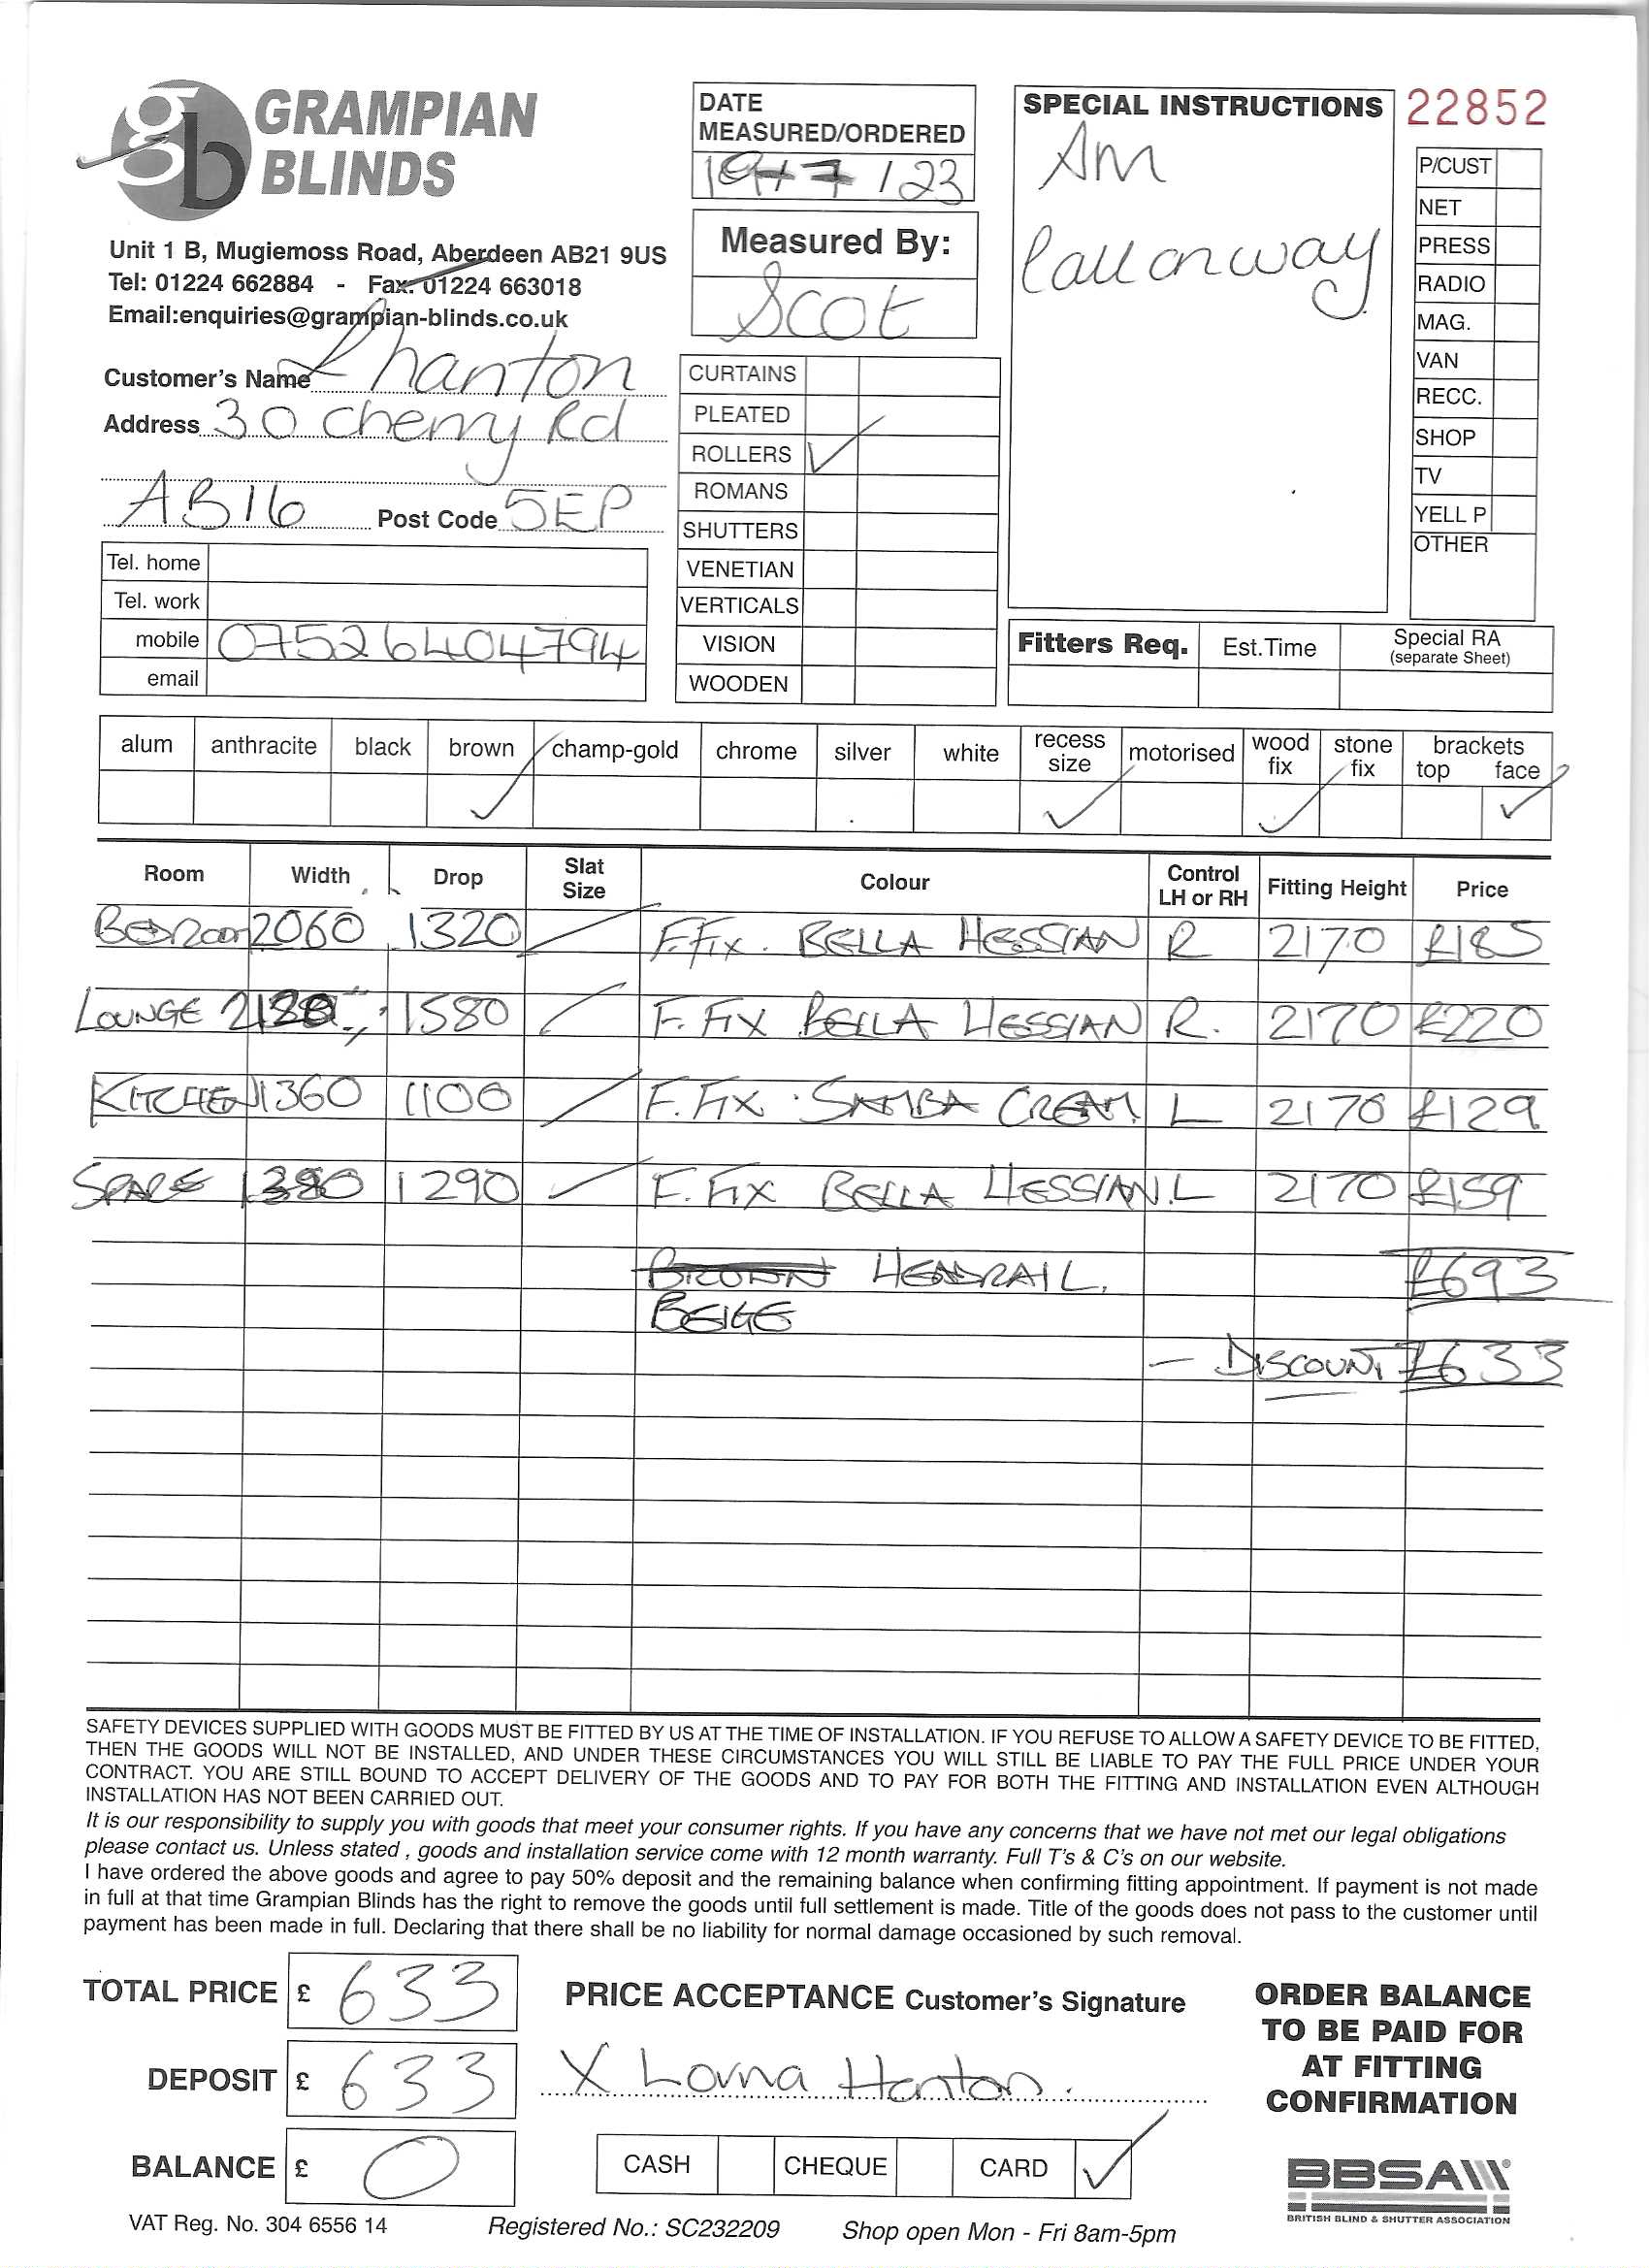 GRAMPIAN
BLINDS
Unit 1 B, Mugiemoss Road, Aberdeen AB21 9US
Tel: 01224 662884 - Fax: 01224 663018
Email:enquiries@grampian-blinds.co.uk
DATE
MEASURED/ORDERED
19/7/23
Measured By:
Scot
SPECIAL INSTRUCTIONS
Am
Call on way
22852
P/CUST
NET
PRESS
RADIO
MAG.
VAN
RECC.
SHOP
TV
YELL P
OTHER
Customer's Name L hanton
Address 30 Cherry Rd
AB16 Post Code 5EP
Tel. home
Tel. work
mobile 07526404794
email
CURTAINS
PLEATED
ROLLERS ✓
ROMANS
SHUTTERS
VENETIAN
VERTICALS
VISION
WOODEN
Fitters Req. Est.Time Special RA
(separate Sheet)
alum anthracite black brown champ-gold chrome silver white recess size motorised wood fix stone fix brackets top face
✓ ✓ ✓ ✓
Room Width Drop Slat Size Colour Control LH or RH Fitting Height Price
BEDROOM 2060 1320 / F.FIX. BELLA HESSIAN R 2170 £185
LOUNGE 1580 / F. FIX BELLA HESSIAN R. 2170 £220
KITCHEN 1360 1100 / F. FIX SAMBA CREAM L 2170 £129
SPARE 1290 / F. FIX BELLA HESSIAN. L 2170 £159
BROWN HEADRAIL. £693
BEIGE
- DISCOUNT £633
SAFETY DEVICES SUPPLIED WITH GOODS MUST BE FITTED BY US AT THE TIME OF INSTALLATION. IF YOU REFUSE TO ALLOW A SAFETY DEVICE TO BE FITTED,
THEN THE GOODS WILL NOT BE INSTALLED, AND UNDER THESE CIRCUMSTANCES YOU WILL STILL BE LIABLE TO PAY THE FULL PRICE UNDER YOUR
CONTRACT. YOU ARE STILL BOUND TO ACCEPT DELIVERY OF THE GOODS AND TO PAY FOR BOTH THE FITTING AND INSTALLATION EVEN ALTHOUGH
INSTALLATION HAS NOT BEEN CARRIED OUT.
It is our responsibility to supply you with goods that meet your consumer rights. If you have any concerns that we have not met our legal obligations
please contact us. Unless stated , goods and installation service come with 12 month warranty. Full T's & C's on our website.
I have ordered the above goods and agree to pay 50% deposit and the remaining balance when confirming fitting appointment. If payment is not made
in full at that time Grampian Blinds has the right to remove the goods until full settlement is made. Title of the goods does not pass to the customer until
payment has been made in full. Declaring that there shall be no liability for normal damage occasioned by such removal.
TOTAL PRICE £ 633
DEPOSIT £ 633
BALANCE £ 0
PRICE ACCEPTANCE Customer's Signature
X Lorna Hanton.
CASH CHEQUE CARD ✓
ORDER BALANCE
TO BE PAID FOR
AT FITTING
CONFIRMATION
BBSA
BRITISH BLIND & SHUTTER ASSOCIATION
VAT Reg. No. 304 6556 14 Registered No.: SC232209 Shop open Mon - Fri 8am-5pm